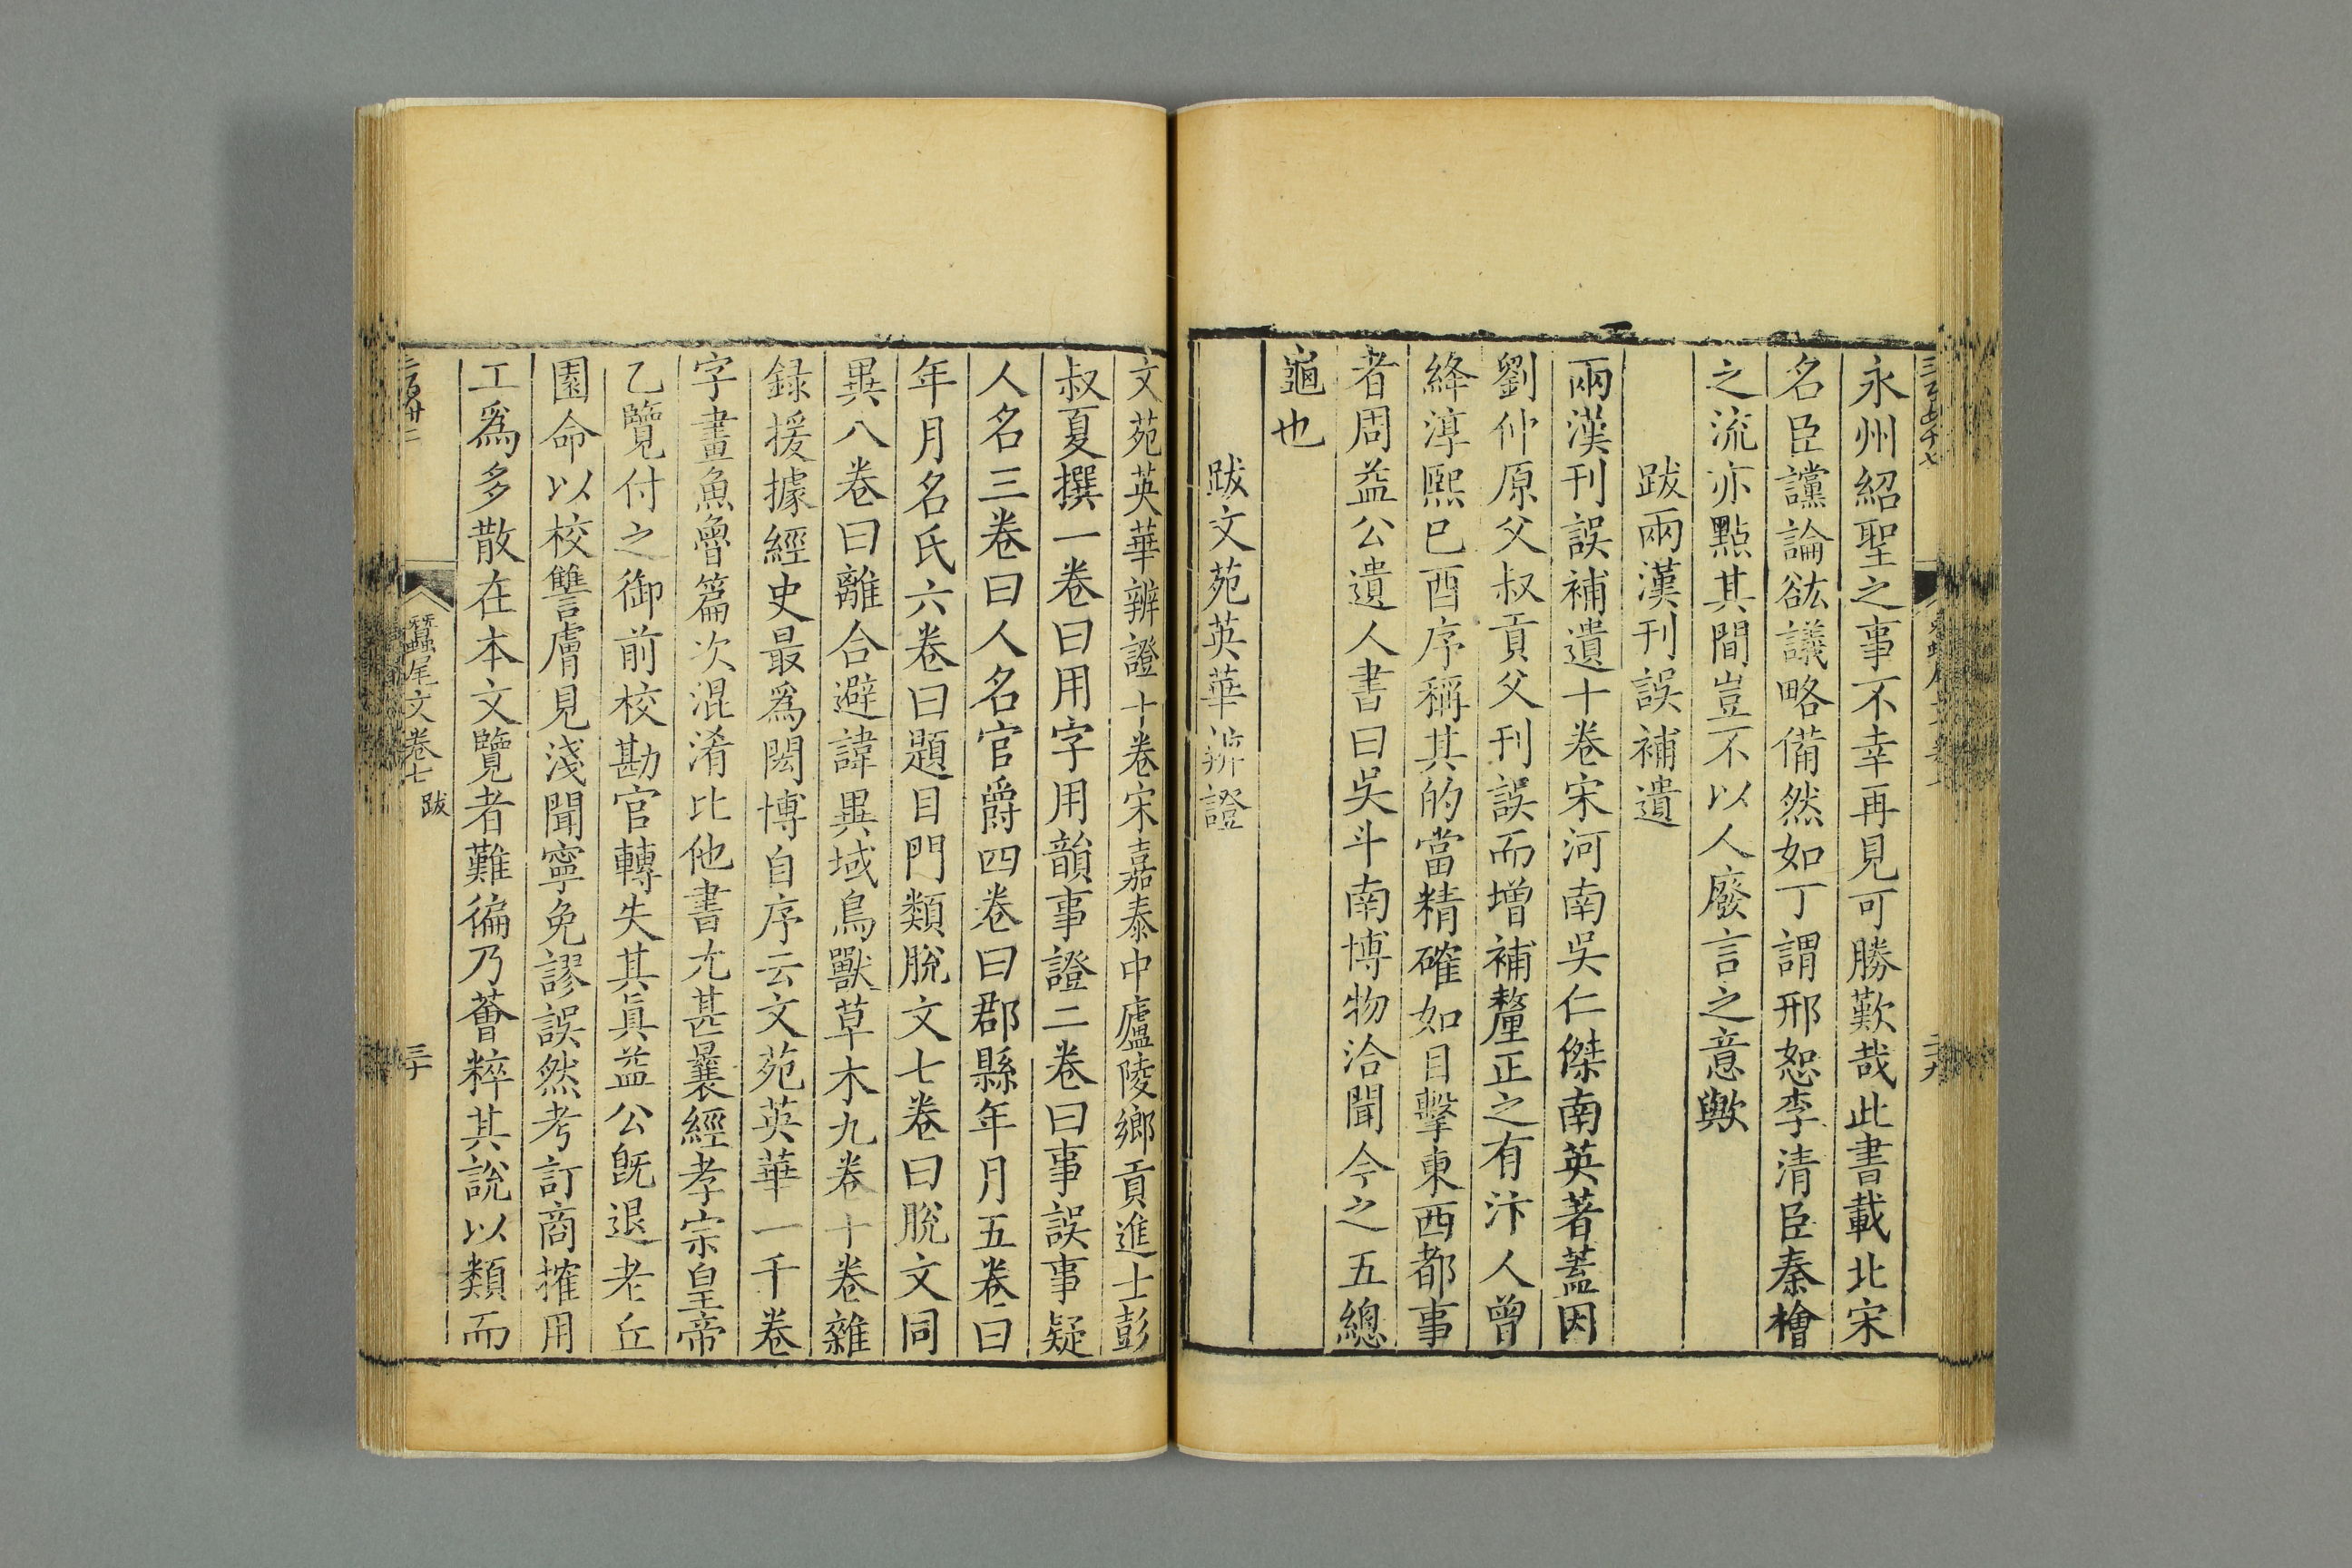 永州紹聖之事不幸再見可勝歎哉此書載北宋
名臣讜論谹議略備然如丁謂邢恕李清臣秦檜
之流亦點其間豈不以人廢言之意歟
跋兩漢刊誤補遺
兩漢刊誤補遺十卷宋河南吳仁傑南英著蓋因
劉仲原父叔貢父刊誤而增補釐正之有汴人曾
絳淳熙巳酉序稱其的當精確如目擊東西都事
者周益公遺人書曰吳斗南博物洽聞今之五總
龜也
跋文苑英華辨證
文苑英華辨證十卷宋嘉泰中廬陵鄉貢進士彭
叔夏撰一卷曰用字用韻事證二卷曰事誤事疑
人名三卷曰人名官爵四卷曰郡縣年月五卷曰
年月名氏六卷曰題目門類脫文七卷曰脫文同
異八卷曰離合避諱異域鳥獸草木九卷十卷雜
録援據經史最爲閎博自序云文苑英華一千卷
字畫魚魯篇次混淆比他書尤甚曩經孝宗皇帝
乙覽付之御前校勘官轉失其眞益公旣退老丘
園命以校讐膚見淺聞寧免謬誤然考訂商搉用
工爲多散在本文覽者難徧乃薈粹其說以類而
蠶尾文卷七 跋
三十